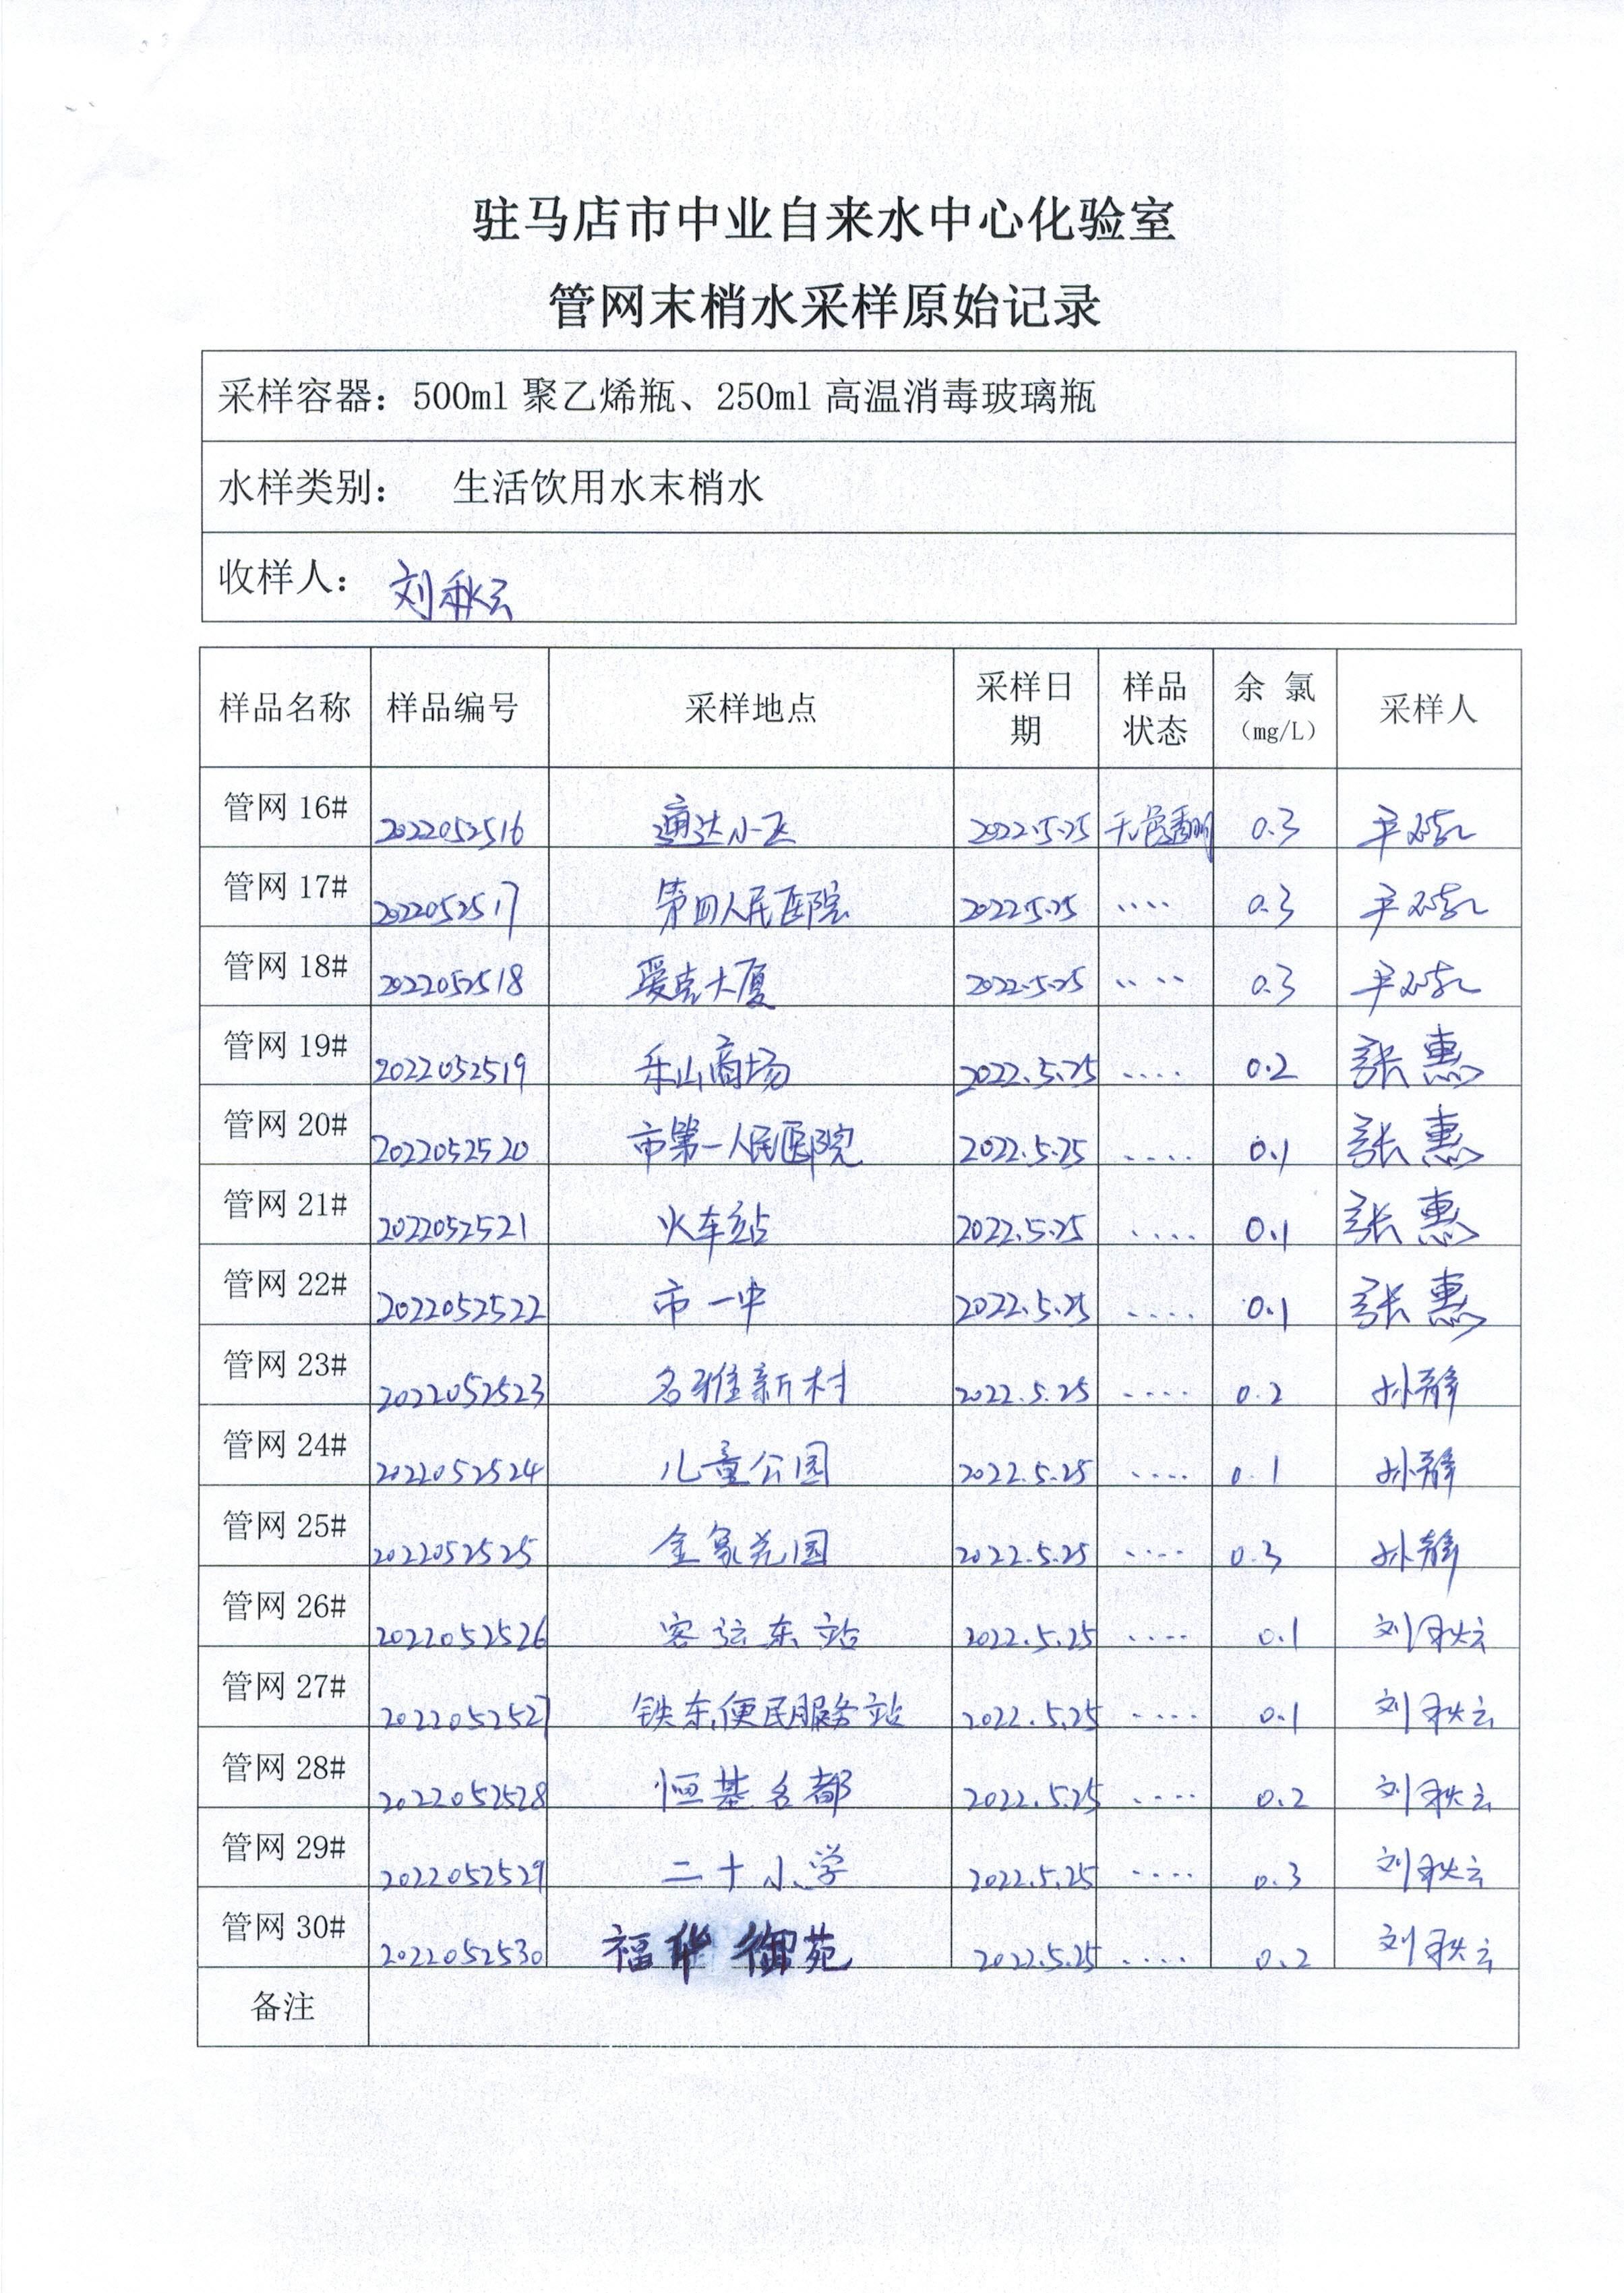 驻马店市中业自来水中心化验室
管网末梢水采样原始记录
采样容器：500ml 聚乙烯瓶、250ml 高温消毒玻璃瓶
水样类别： 生活饮用水末梢水
收样人： 刘秋云
样品名称 样品编号 采样地点 采样日期 样品状态 余 氯（mg/L） 采样人
管网 16# 2022052516 通达小区 2022.5.25 无色透明 0.3
管网 17# 2022052517 第四人民医院 2022.5.25 ···· 0.3
管网 18# 2022052518 爱克大厦 2022.5.25 ···· 0.3
管网 19# 2022052519 乐山商场 2022.5.25 ···· 0.2 張惠
管网 20# 2022052520 市第一人民医院 2022.5.25 ···· 0.1 張惠
管网 21# 2022052521 火车站 2022.5.25 ···· 0.1 張惠
管网 22# 2022052522 市一中 2022.5.25 ···· 0.1 張惠
管网 23# 2022052523 名雅新村 2022.5.25 ···· 0.2 孙静
管网 24# 2022052524 儿童公园 2022.5.25 ···· 0.1 孙静
管网 25# 2022052525 金象花园 2022.5.25 ···· 0.3 孙静
管网 26# 2022052526 客运东站 2022.5.25 ···· 0.1 刘秋云
管网 27# 2022052527 铁东便民服务站 2022.5.25 ···· 0.1 刘秋云
管网 28# 2022052528 恒基名都 2022.5.25 ···· 0.2 刘秋云
管网 29# 2022052529 二十小学 2022.5.25 ···· 0.3 刘秋云
管网 30# 2022052530 福华御苑 2022.5.25 ···· 0.2 刘秋云
备注